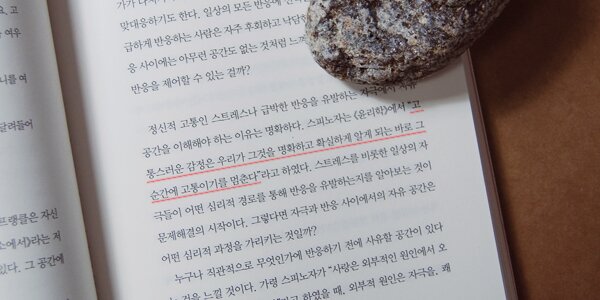 여우
니를 여
달려들어
프랭클은 자신
소에서》라는 저
있다. 그 공간에
맞대응하기도 한다. 일상의 모든 반응에
급하게 반응하는 사람은 자주 후회하고 낙담
응 사이에는 아무런 공간도 없는 것처럼 느껴
반응을 제어할 수 있는 걸까?
정신적 고통인 스트레스나 급박한 반응을 유발하는 자극에서 자유
공간을 이해해야 하는 이유는 명확하다. 스피노자는 《윤리학》에서 "고
통스러운 감정은 우리가 그것을 명확하고 확실하게 알게 되는 바로 그
순간에 고통이기를 멈춘다"라고 하였다. 스트레스를 비롯한 일상의 자
극들이 어떤 심리적 경로를 통해 반응을 유발하는지를 알아보는 것이
문제해결의 시작이다. 그렇다면 자극과 반응 사이에서의 자유 공간은
어떤 심리적 과정을 가리키는 것일까?
누구나 직관적으로 무엇인가에 반응하기 전에 사유할 공간이 있다
는 것을 느낄 것이다. 가령 스피노자가 "사랑은 외부적인 원인에서 오
라고 하였을 때, 외부적 원인은 자극을, 쾌